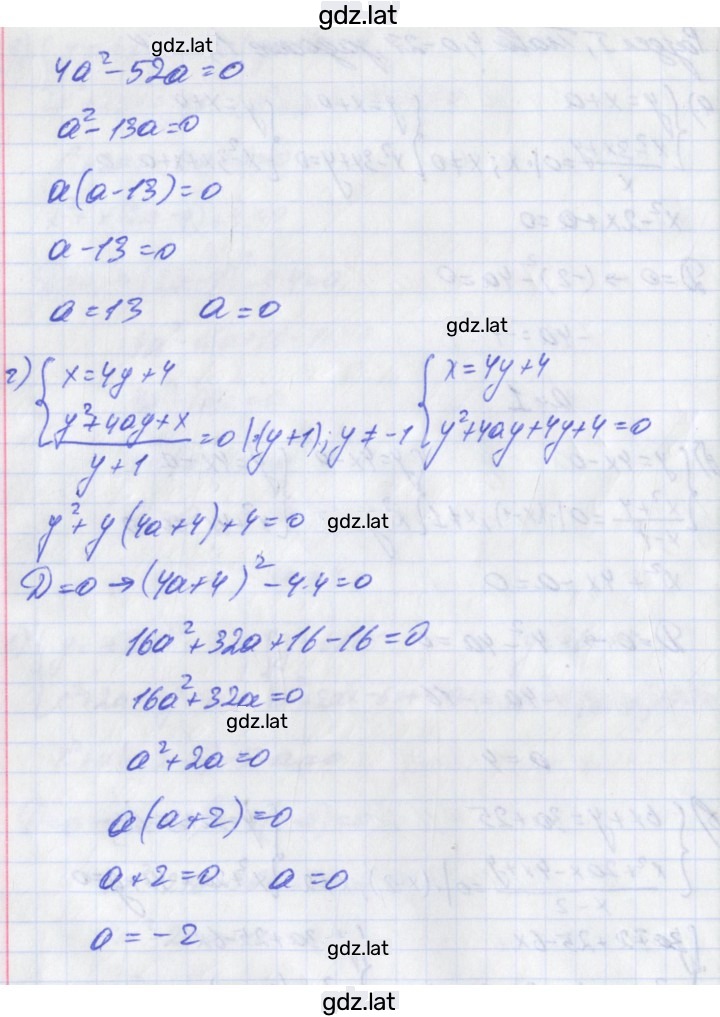 gdz.lat
gdz.lat
4a² - 52a = 0
a² - 13a = 0
a(a - 13) = 0
a - 13 = 0
a = 13 a = 0
gdz.lat
г) { x = 4y + 4 { x = 4y + 4
(y² + 4ay + x)/(y + 1) = 0 | · (y + 1); y ≠ -1 y² + 4ay + 4y + 4 = 0
y² + y(4a + 4) + 4 = 0 gdz.lat
D = 0 → (4a + 4)² - 4·4 = 0
16a² + 32a + 16 - 16 = 0
16a² + 32a = 0
gdz.lat
a² + 2a = 0
a(a + 2) = 0
a + 2 = 0 a = 0
a = -2
gdz.lat
gdz.lat